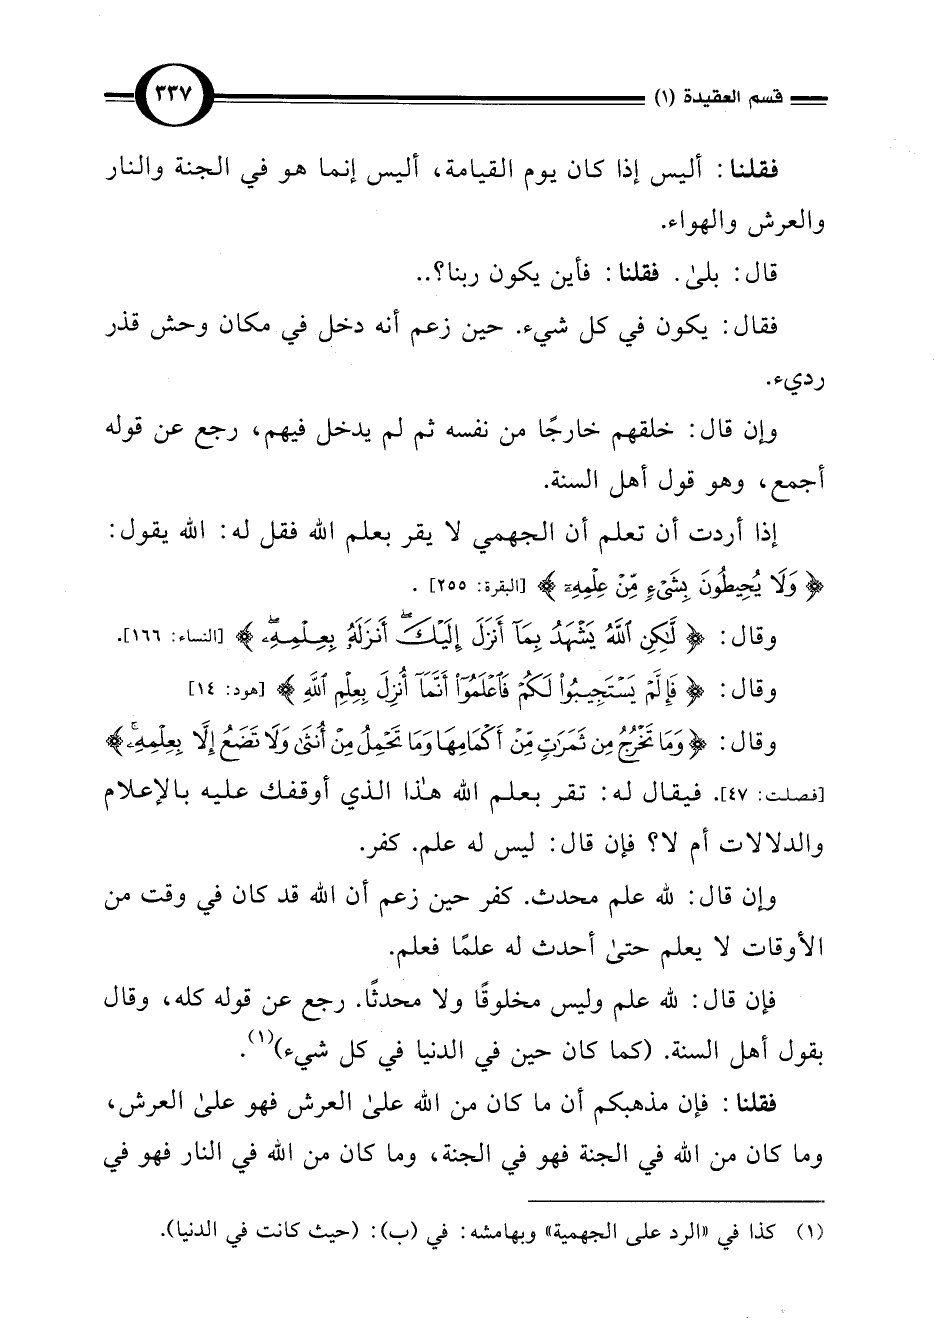 قسم العقيدة (١)
٣٣٧
فقلنا: أليس إذا كان يوم القيامة، أليس إنما هو في الجنة والنار
والعرش والهواء.
قال: بلىٰ. فقلنا: فأين يكون ربنا؟..
فقال: يكون في كل شيء. حين زعم أنه دخل في مكان وحش قذر
رديء.
وإن قال: خلقهم خارجًا من نفسه ثم لم يدخل فيهم، رجع عن قوله
أجمع، وهو قول أهل السنة.
إذا أردت أن تعلم أن الجهمي لا يقر بعلم الله فقل له: الله يقول:
﴿وَلَا يُحِيطُونَ بِشَىْءٍ مِّنْ عِلْمِهِۦٓ﴾ [البقرة: ٢٥٥] .
وقال: ﴿لَّٰكِنِ ٱللَّهُ يَشْهَدُ بِمَآ أَنزَلَ إِلَيْكَۖ أَنزَلَهُۥ بِعِلْمِهِۦۖ﴾ [النساء: ١٦٦].
وقال: ﴿فَإِلَّمْ يَسْتَجِيبُوا۟ لَكُمْ فَٱعْلَمُوٓا۟ أَنَّمَآ أُنزِلَ بِعِلْمِ ٱللَّهِ﴾ [هود: ١٤]
وقال: ﴿وَمَا تَخْرُجُ مِن ثَمَرَٰتٍ مِّنْ أَكْمَامِهَا وَمَا تَحْمِلُ مِنْ أُنثَىٰ وَلَا تَضَعُ إِلَّا بِعِلْمِهِۦۚ﴾
[فصلت: ٤٧]. فيقال له: تقر بعلم الله هـٰذا الذي أوقفك عليه بالإعلام
والدلالات أم لا؟ فإن قال: ليس له علم. كفر.
وإن قال: لله علم محدث. كفر حين زعم أن الله قد كان في وقت من
الأوقات لا يعلم حتىٰ أحدث له علمًا فعلم.
فإن قال: لله علم وليس مخلوقًا ولا محدثًا. رجع عن قوله كله، وقال
بقول أهل السنة. (كما كان حين في الدنيا في كل شيء)(١).
فقلنا: فإن مذهبكم أن ما كان من الله علىٰ العرش فهو علىٰ العرش،
وما كان من الله في الجنة فهو في الجنة، وما كان من الله في النار فهو في
(١) كذا في «الرد على الجهمية» وبهامشه: في (ب): (حيث كانت في الدنيا).